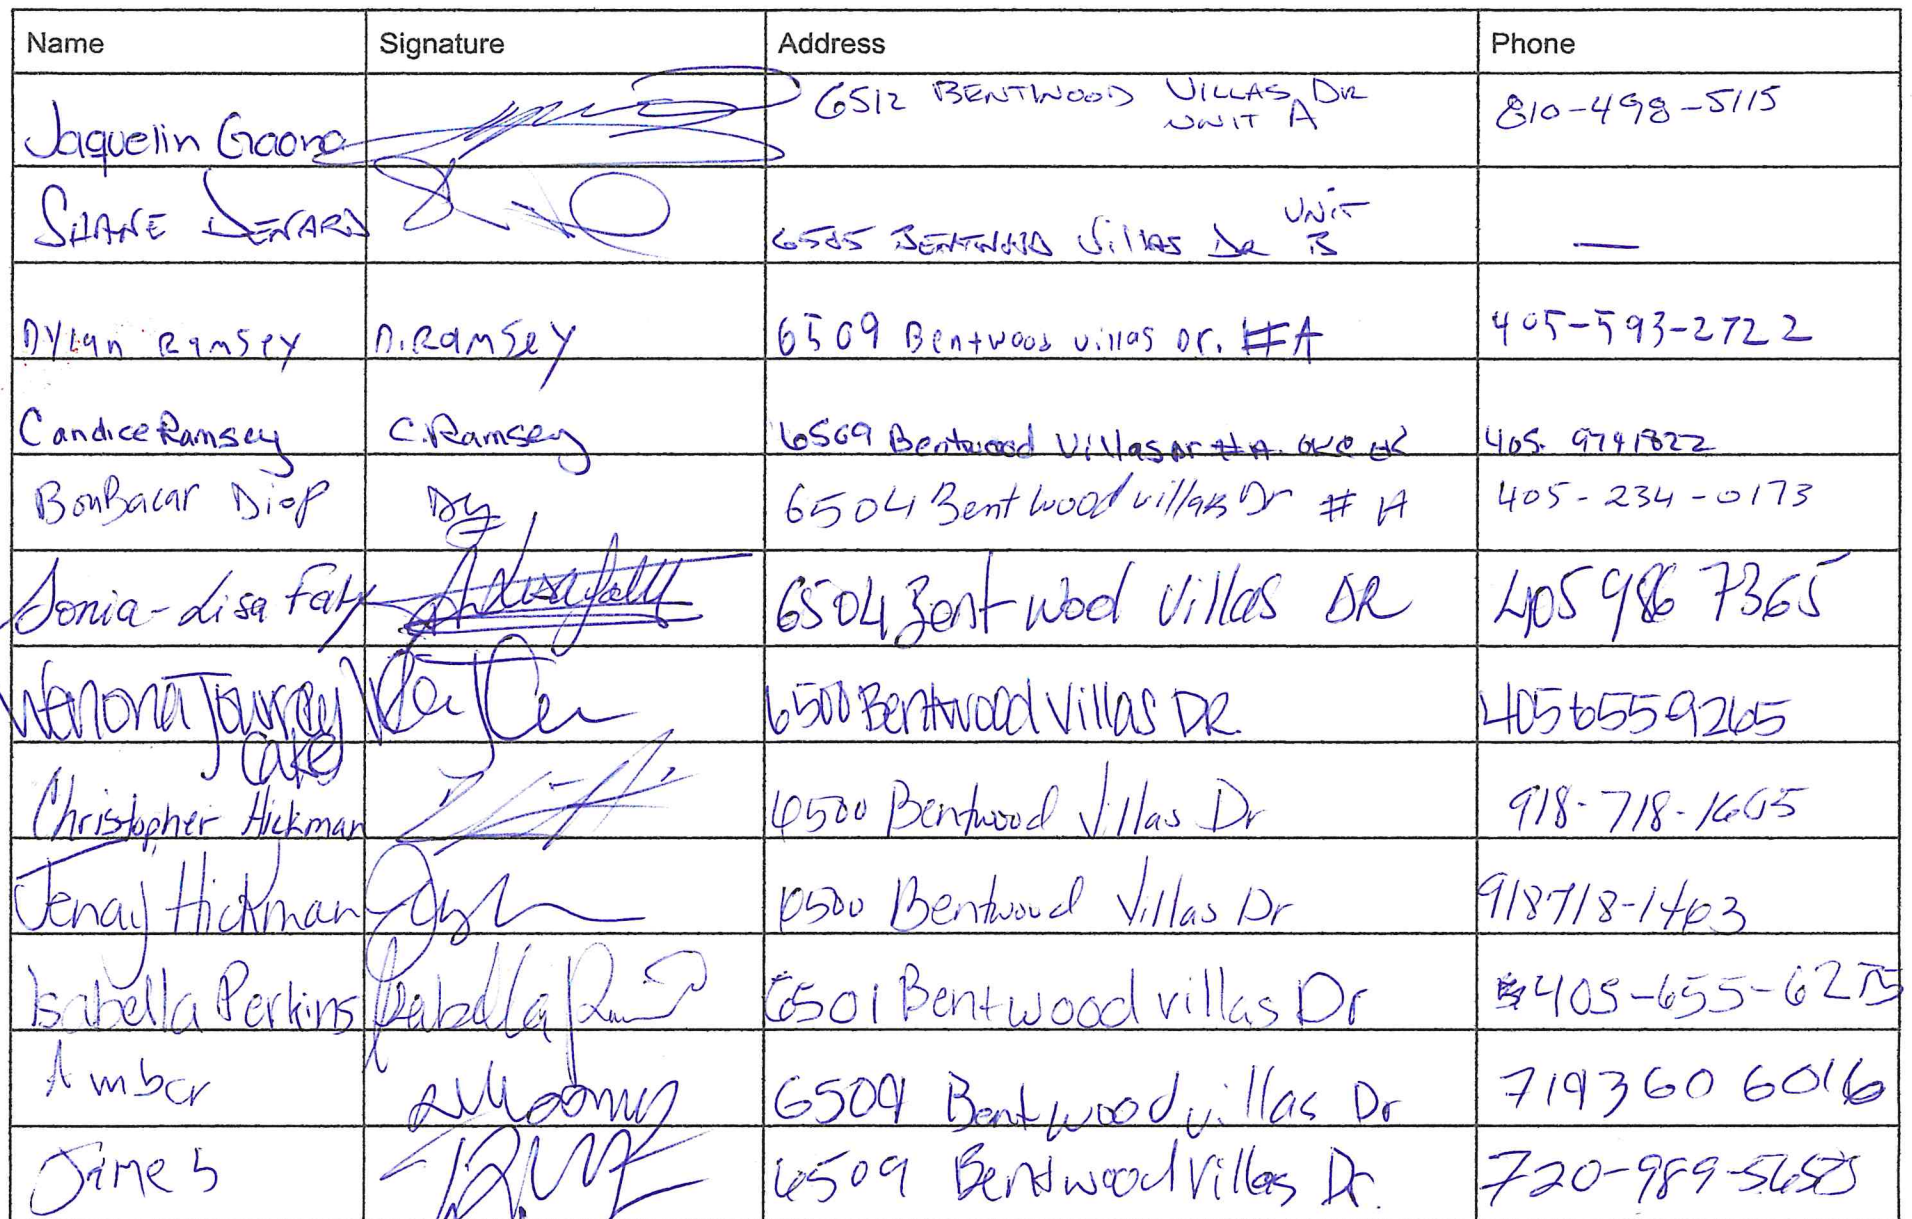 Name Signature Address Phone
Jaquelin Gaona 6512 BENTWOOD VILLAS DR 810-498-5115
UNIT A
SHANE DENARD 6505 BENTWOOD VillAS DR UNIT —
B
DYLan Ramsey D.Ramsey 6509 Bentwood villas Dr. #A 405-593-2722
Candice Ramsey C.Ramsey 6509 Bentwood Villas Dr #A. OKC OK 405. 9741822
BouBacar Diop 6504 Bentwood villas Dr # A 405-234-0173
Sonia-Lisa Faty 6504 Bentwood Villas DR 405 986 7365
Wenona Journey 6500 Bentwood Villas DR. 4056559265
Cake
Christopher Hickman 6500 Bentwood Villas Dr 918-718-1605
Jenay Hickman 6500 Bentwood Villas Dr 918718-1403
Isabella Perkins Isabella 6501 Bentwood villas Dr 405-655-6275
Amber 6509 Bentwood villas Dr 719360 6016
James 6509 Bentwood Villas Dr. 720-989-5655